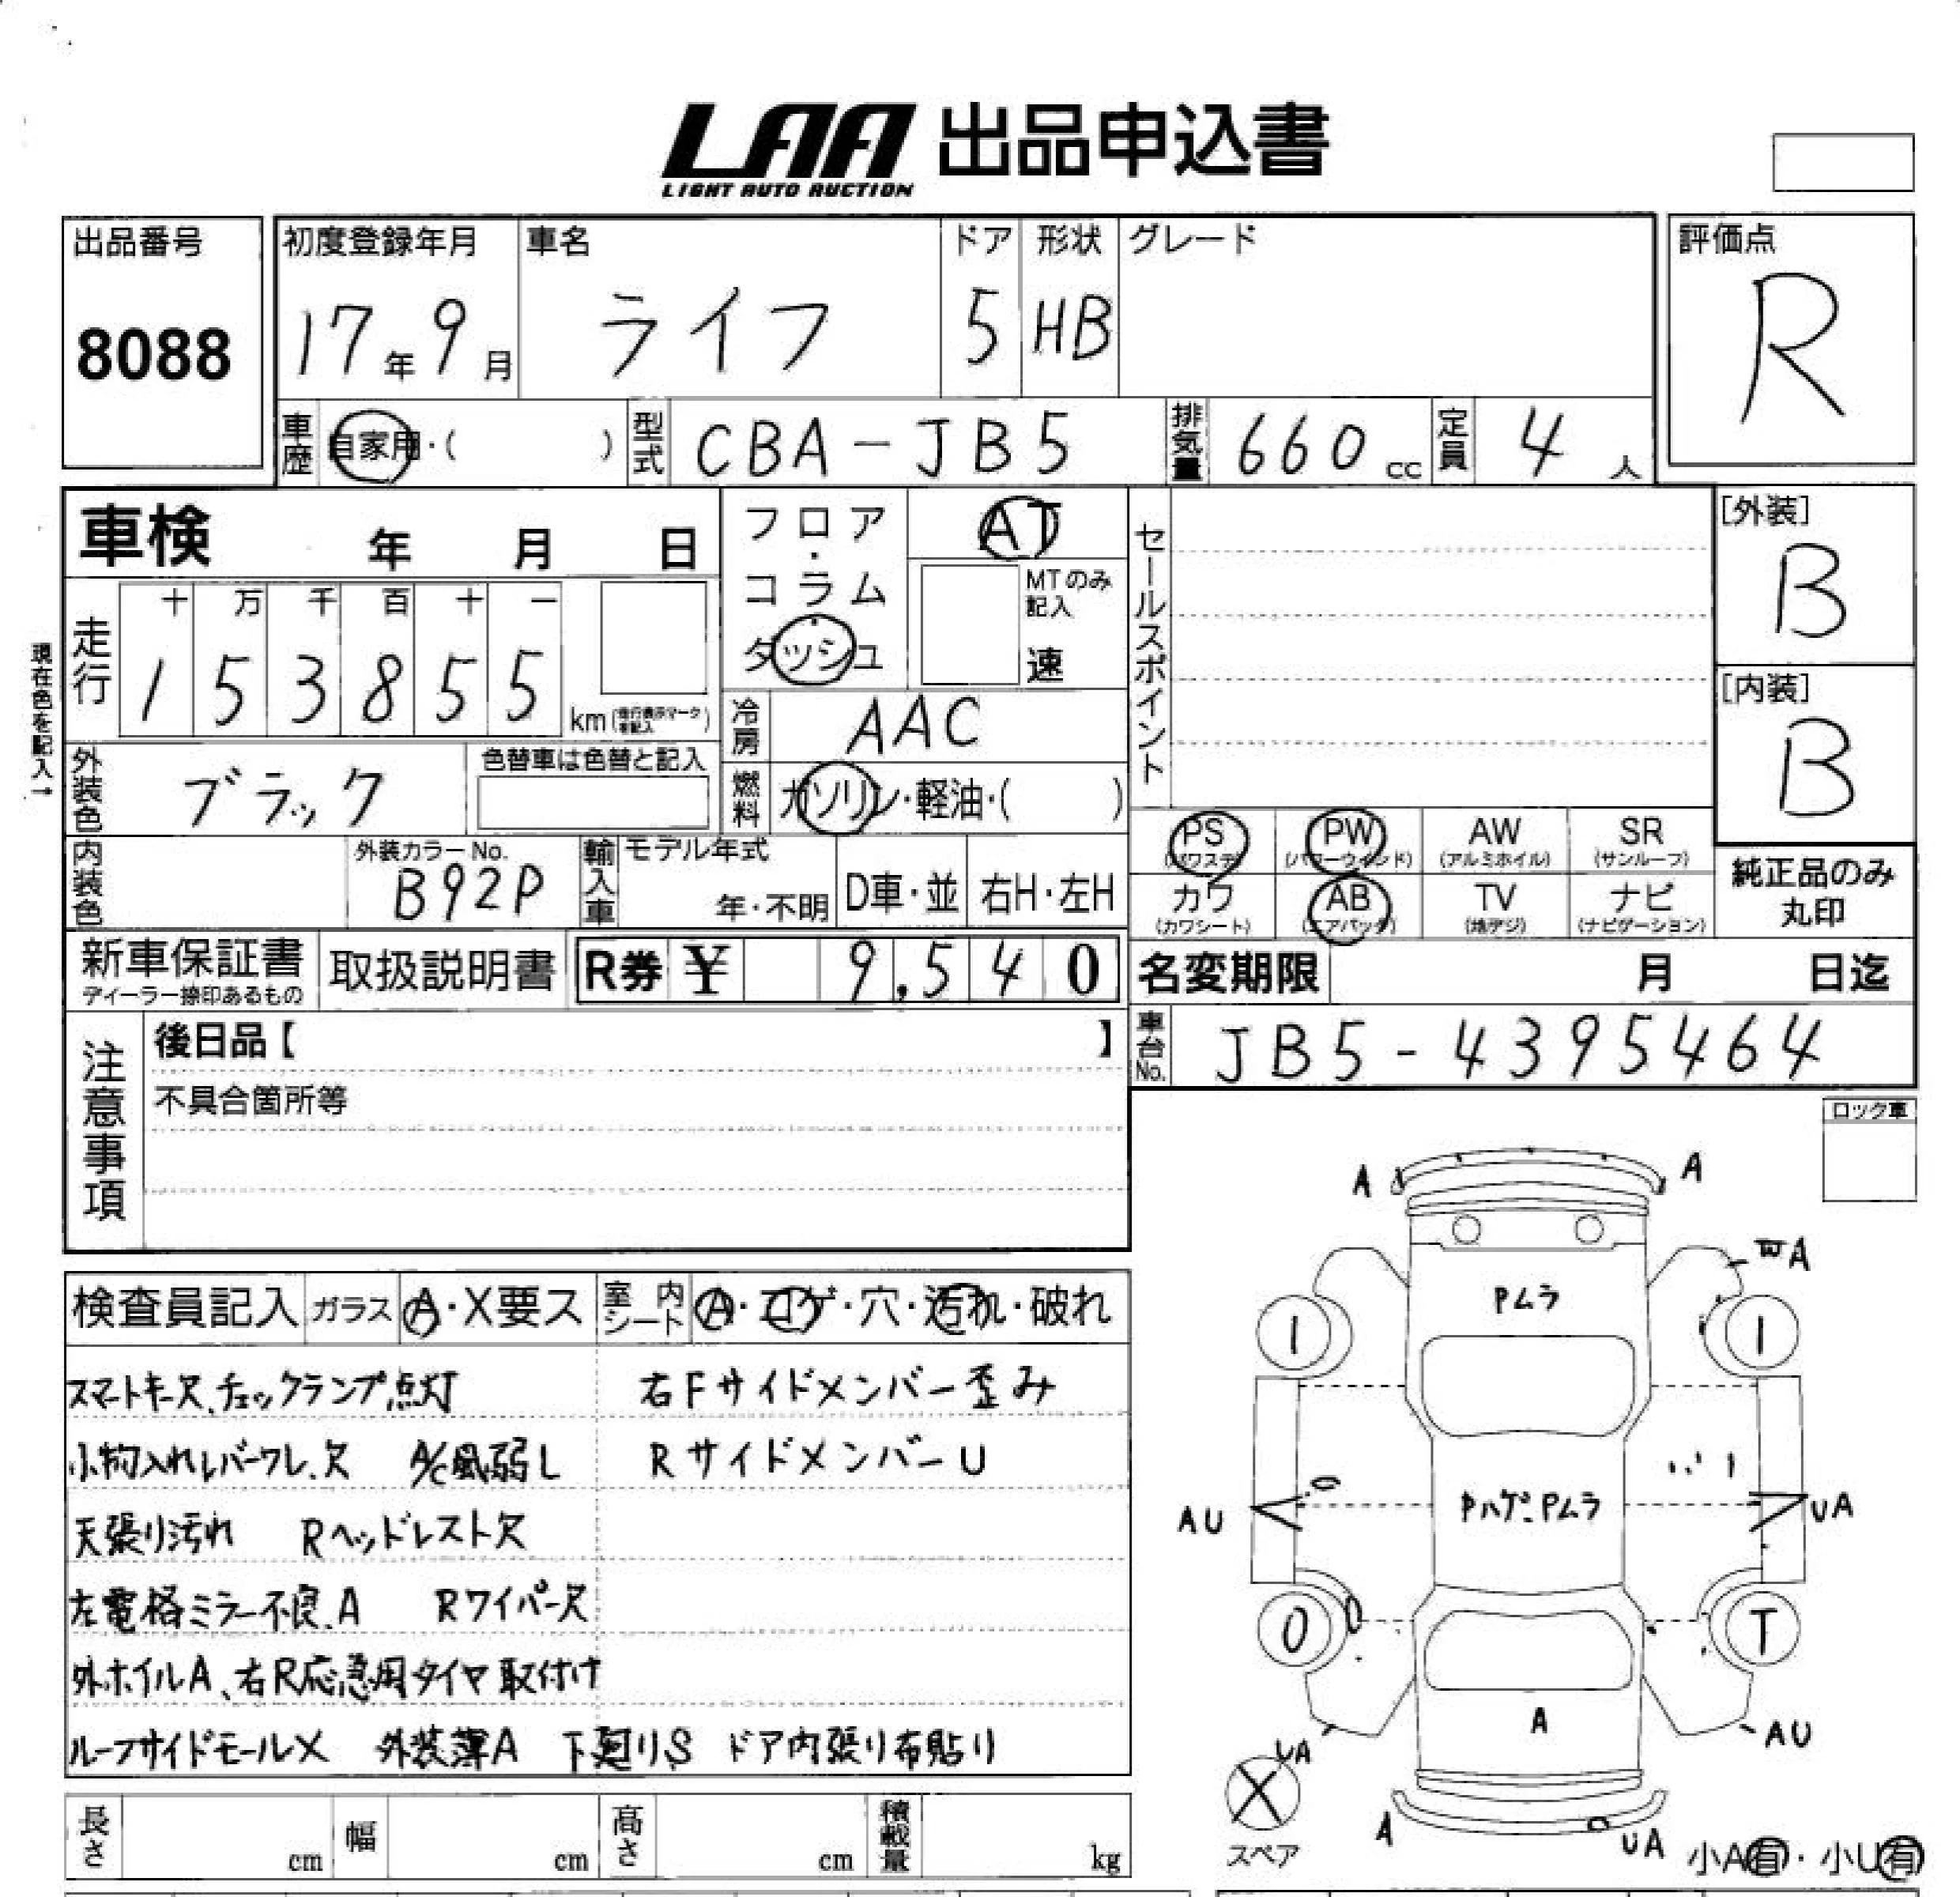 LAA 出品申込書
LIGHT AUTO AUCTION
出品番号
8088
初度登録年月
17年 9月
車名
ライフ
ドア
5
形状
HB
グレード
評価点
R
車歴 自家用・( )
型式 CBA-JB5
排気量 660 cc
定員 4 人
車検 年 月 日
フロア・コラム・ダッシュ
AT
MTのみ記入
速
セールスポイント
[外装]
B
[内装]
B
現在色を記入→
走行
十 万 千 百 十 一
1 5 3 8 5 5 km
冷房 AAC
外装色 ブラック
色替車は色替と記入
燃料 ガソリン・軽油・( )
内装色
外装カラーNo.
B92P
輸入車
モデル年式
年・不明
D車・並
右H・左H
PS (パワステ)
PW (パワーウィンド)
AW (アルミホイル)
SR (サンルーフ)
カワ (カワシート)
AB (エアバッグ)
TV (地デジ)
ナビ (ナビゲーション)
純正品のみ
丸印
新車保証書
ディーラー捺印あるもの
取扱説明書
R券 ¥ 9,540
名変期限 月 日迄
車台No. JB5-4395464
注意事項
後日品【 】
不具合箇所等
ロック車
検査員記入
ガラス A・X要ス
室内シート A・コゲ・穴・汚れ・破れ
スマートキー欠、チェックランプ点灯
右Fサイドメンバー歪み
小物入れレバーワレ、欠 A/C風弱し
RサイドメンバーU
天張り汚れ Rヘッドレスト欠
左電格ミラー不良、A Rワイパー欠
外ホイルA、右R応急用タイヤ取付け
ルーフサイドモールX 外装薄A 下廻りS ドア内張り布貼り
A A
A
Pムラ
1 1
AU
ハゲ、Pムラ
UA
0 T
A
UA
AU
スペア
A
UA
小A有・小U有
長さ cm
幅 cm
高さ cm
積載量 kg